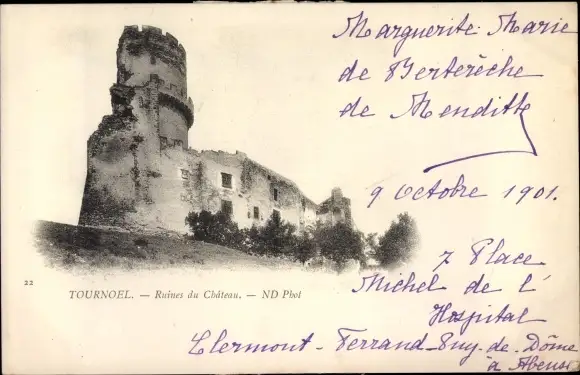 Marguerite Marie
de Berterèche
de Menditte
9 Octobre 1901.
7 Place
Michel de l'
Hospital
Clermont-Ferrand-Puy-de-Dôme
à
22
TOURNOEL. — Ruines du Château. — ND Phot